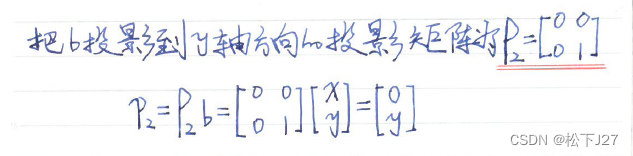 把b投影到y轴方向的投影矩阵为P₂=[0 0; 0 1]
p₂=P₂b=[0 0; 0 1][x; y]=[0; y]
CSDN @松下J27